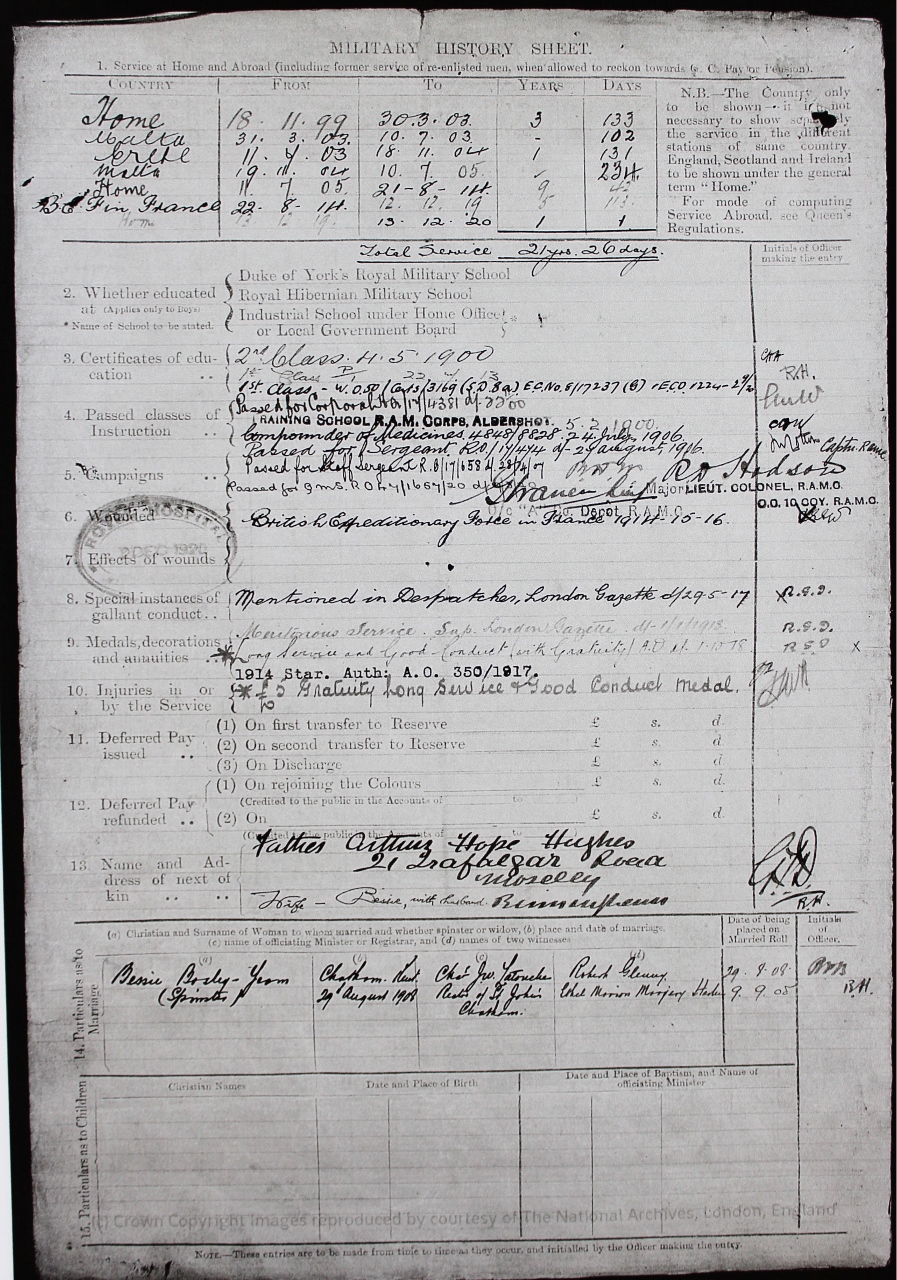 MILITARY HISTORY SHEET.
1. Service at Home and Abroad (including former service of re-enlisted men, when allowed to reckon towards G. C. Pay or Pension).
COUNTRY FROM TO YEARS DAYS
Home 18. 11. 99 30. 3. 03. 3 133
Malta 31. 3. 03. 10. 7. 03 - 102
Crete 11. 7. 03 18. 11. 04 1 131
Malta 19. 11. 04 10. 7. 05. - 234
Home 11. 7 05. 21-8-14. 9 42
B.E.F in France 22. 8-14. 12. 12. 19 5 113
Home 13 12 19. 13. 12. '20 1 1
N.B.—The Country only
to be shown—it is not
necessary to show separately
the service in the different
stations of same country.
England, Scotland and Ireland
to be shown under the general
term "Home."
For mode of computing
Service Abroad, see Queen's
Regulations.
Total Service 21 yrs. 26 days.
Initials of Officer
making the entry
2. Whether educated
at (Applies only to Boys)
*Name of School to be stated.
Duke of York's Royal Military School
Royal Hibernian Military School
Industrial School under Home Office
or Local Government Board
3. Certificates of edu-
cation ..
2nd Class. 4. 5. 1900
1st Class
R.H.
4. Passed classes of
Instruction ..
Passed for Corporal
TRAINING SCHOOL R.A.M. CORPS, ALDERSHOT. 5. 2. 1900.
Compounder of Medicines. 4848/8828. 24 July 1906.
Passed for Sergeant, R.O./17/474 d- 29 August, 1906.
5. Campaigns ..
Passed for Staff Sergeant R.O/17/658 d.
Major LIEUT. COLONEL, R.A.M.C.
O/c "A" Co. Depot R.A.M.C. O.C. 10 COY. R.A.M.C.
6. Wounded
British Expeditionary Force in France 1914-15-16.
HOSPITAL
2 DEC 1920
7. Effects of wounds
8. Special instances of
gallant conduct ..
Mentioned in Despatches, London Gazette d/29-5-17 R.S.D.
9. Medals, decorations
and annuities ..
Meritorious Service. Sup. London Gazette d- 1/1/1918. R.S.D.
Long Service and Good Conduct (with Gratuity) A.O. R.S.D x
1914 Star. Auth: A.O. 350/1917.
10. Injuries in or
by the Service
* £5 Gratuity Long Service & Good Conduct Medal.
11. Deferred Pay
issued ..
(1) On first transfer to Reserve £ s. d.
(2) On second transfer to Reserve £ s. d.
(3) On Discharge £ s. d.
12. Deferred Pay
refunded ..
(1) On rejoining the Colours
(Credited to the public in the Accounts of to )
(2) On £ s. d.
(Credited to the public in the Accounts of to )
13. Name and Ad-
dress of next of
kin .. ..
Father Arthur Hope Hughes
21 Trafalgar Road
Moseley
Birmingham
Wife - Bessie, with husband.
R.H.
14. Particulars as to
Marriage
(a) Christian and Surname of Woman to whom married and whether spinster or widow, (b) place and date of marriage,
(c) name of officiating Minister or Registrar, and (d) names of two witnesses
Date of being
placed on
Married Roll
Initials
of
Officer.
(a) (b) (c) (d)
Bessie
(Spinster)
Chatham. Kent.
29 August 1908
Rector of St John's
Chatham.
Robert
Ethel Marion
29. 8. 08.
9. 9. 08
B.H.
15. Particulars as to Children
Christian Names
Date and Place of Birth
Date and Place of Baptism, and Name of
officiating Minister
(c) Crown Copyright Images reproduced by courtesy of The National Archives, London, England
NOTE.—These entries are to be made from time to time as they occur, and initialled by the Officer making the entry.